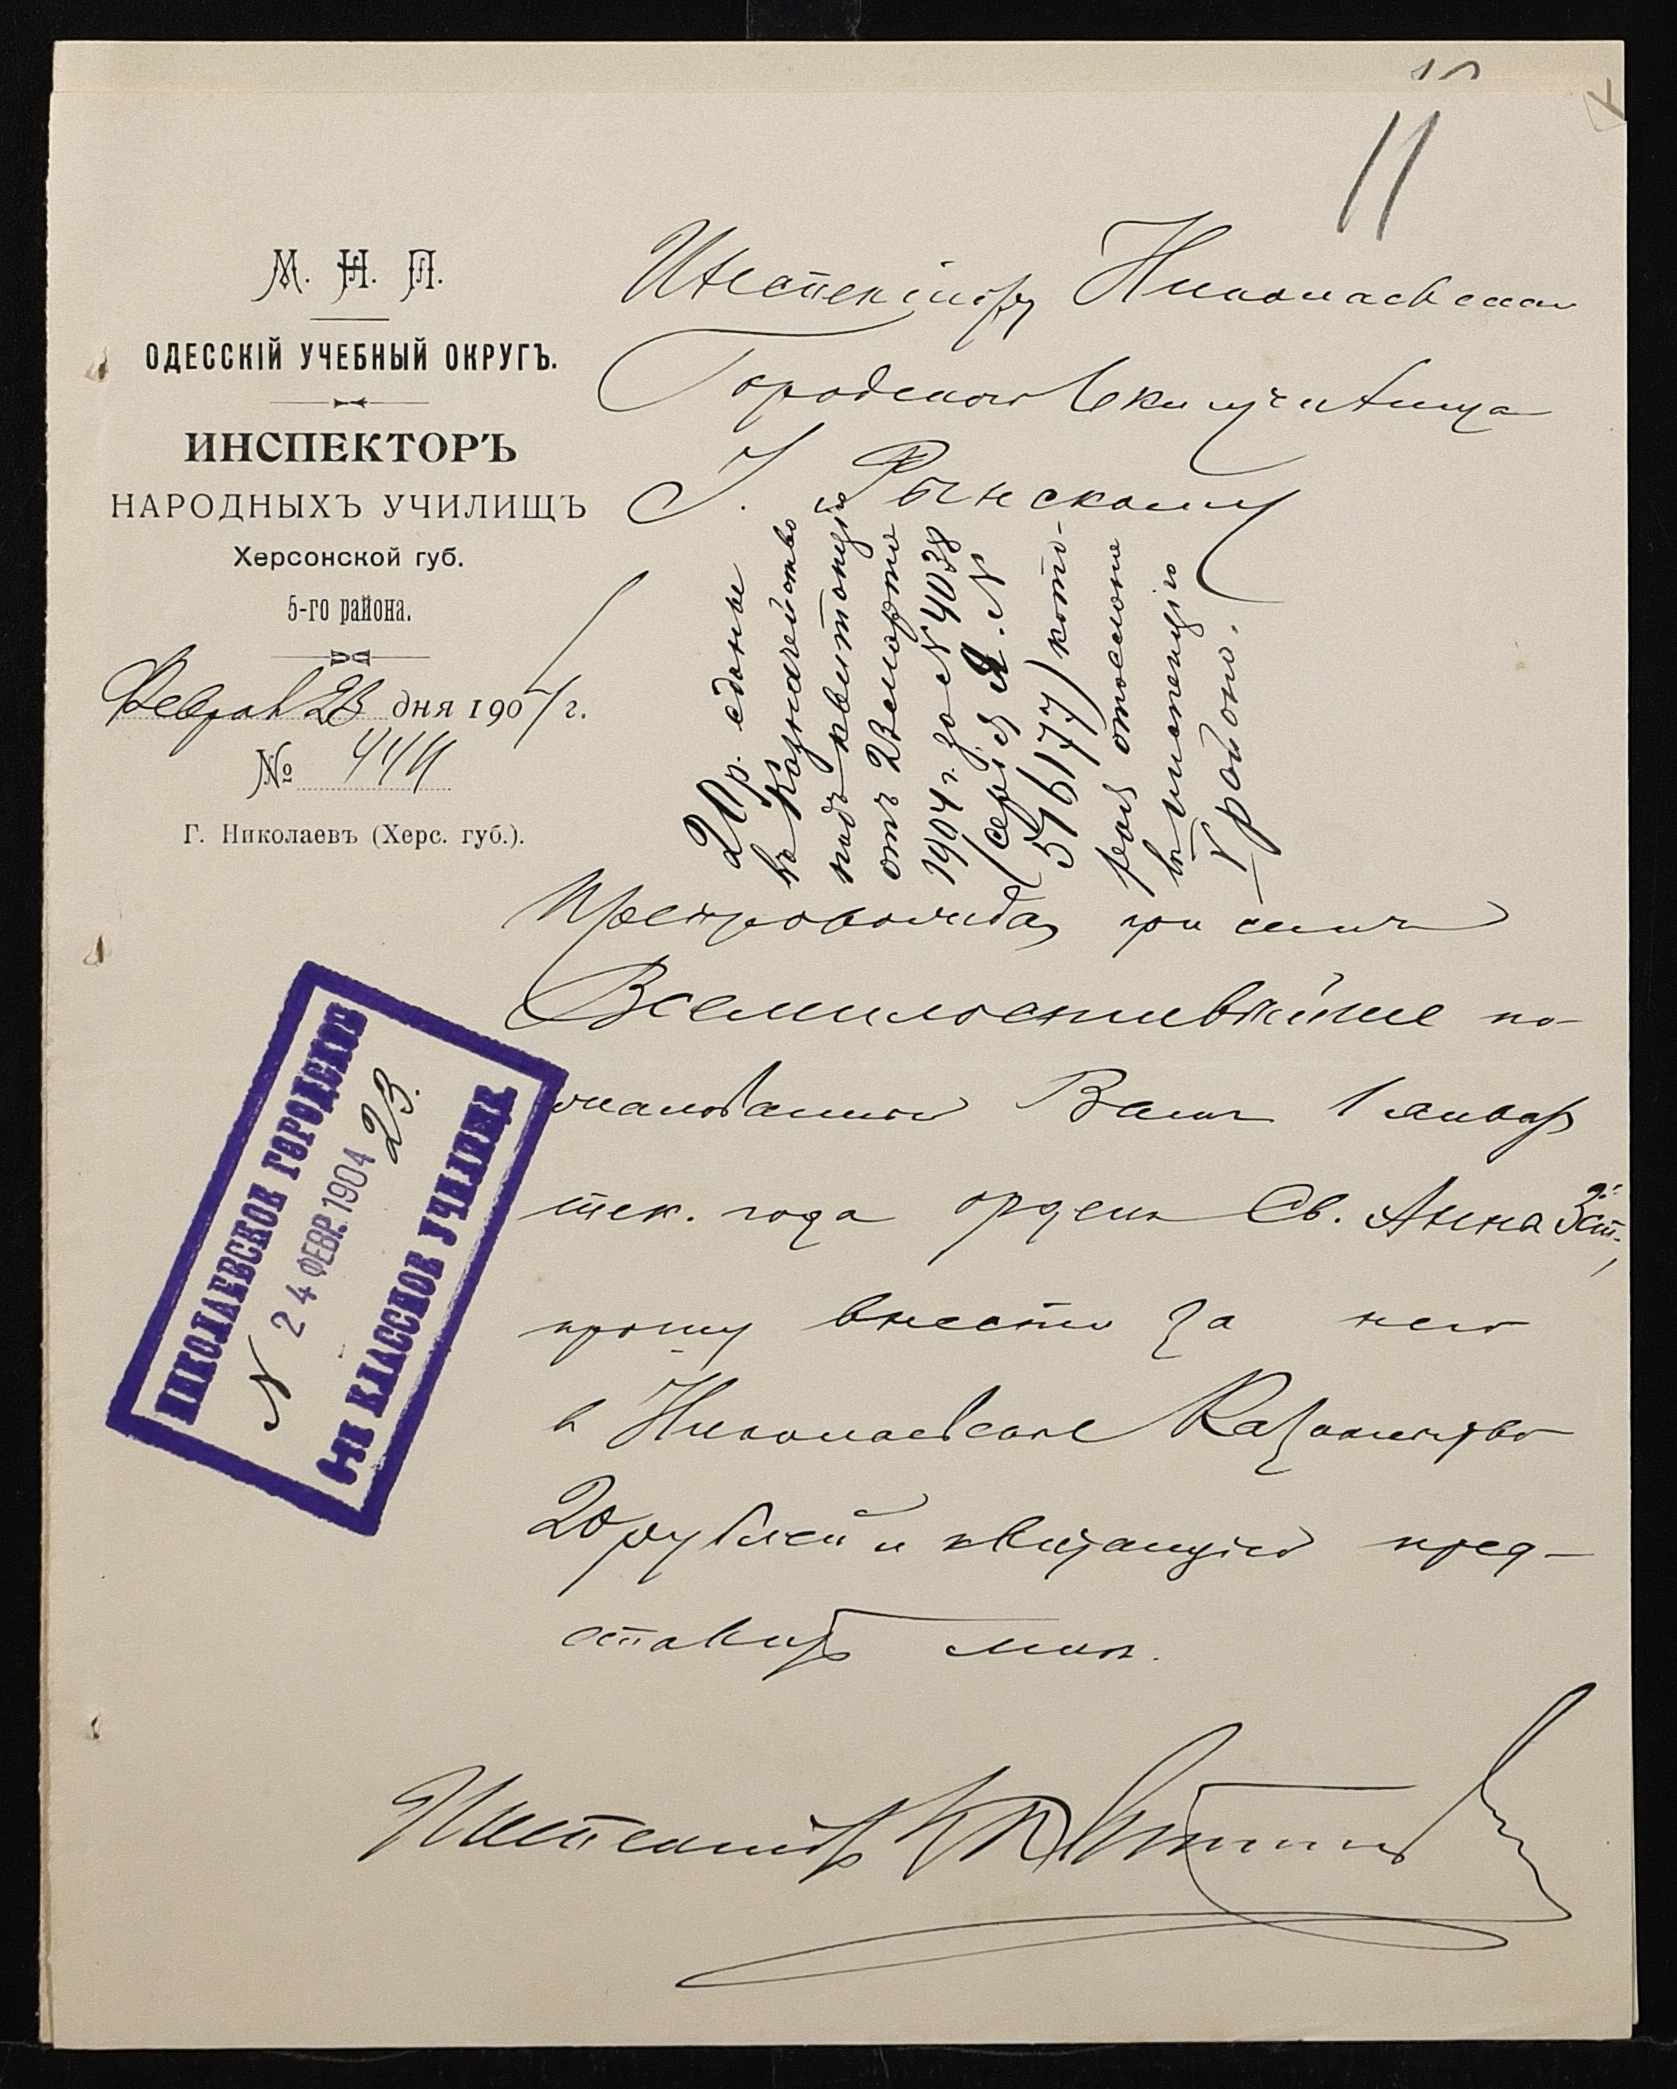 11
М. Н. П.
ОДЕССКІЙ УЧЕБНЫЙ ОКРУГЪ.
ИНСПЕКТОРЪ
НАРОДНЫХЪ УЧИЛИЩЪ
Херсонской губ.
5-го района.
Февраля 23 дня 1904 г.
№ 444
Г. Николаевъ (Херс. губ.).
Инспектору Николаевскаго
Городского 6 кл училища
Г. Рынскому
20 р. сданы
въ Казначейство
подъ квитанцію
отъ 2 марта
1904 г. за № 4038
(серія Я. №
576177) кото-
рая отослана
инспекцію
V района.
Препровождая при семъ
Всемилостивѣйше по-
жалованный Вамъ 1 января
тек. года орденъ Св. Анны 3 ст.,
прошу внести за него
въ Николаевское Казначейство
20 рублей и квитанцію пред-
ставить мнѣ.
Инспекторъ
НИКОЛАЕВСКОЕ ГОРОДСКОЕ
N 24 ФЕВР. 1904 23.
6-ТИ КЛАССНОЕ УЧИЛИЩЕ